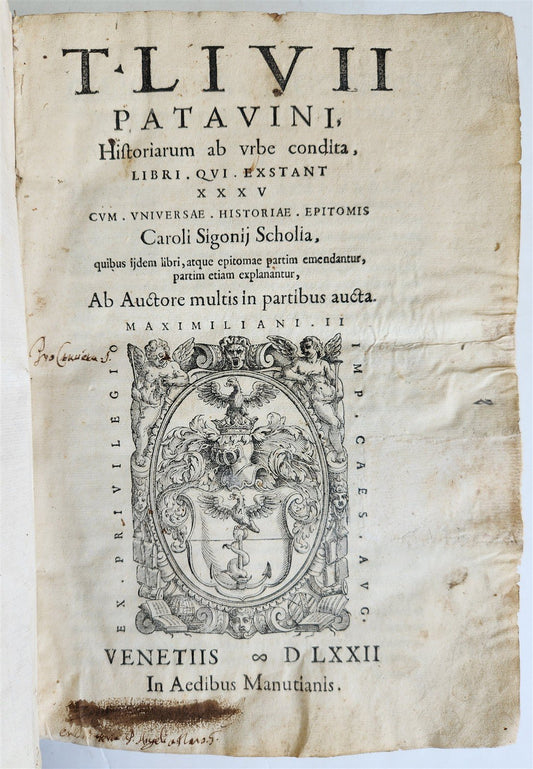 T. LIVII
PATAVINI,
Hiſtoriarum ab vrbe condita,
LIBRI . QVI . EXSTANT
XXXV
CVM . VNIVERSAE . HISTORIAE . EPITOMIS
Caroli Sigonij Scholia,
quibus ijdem libri, atque epitomae partim emendantur,
partim etiam explanantur,
Ab Auctore multis in partibus aucta.
MAXIMILIANI . II
IMP . CAES . AVG .
EX . PRIVILEGIO
VENETIIS ∞ D LXXII
In Aedibus Manutianis.